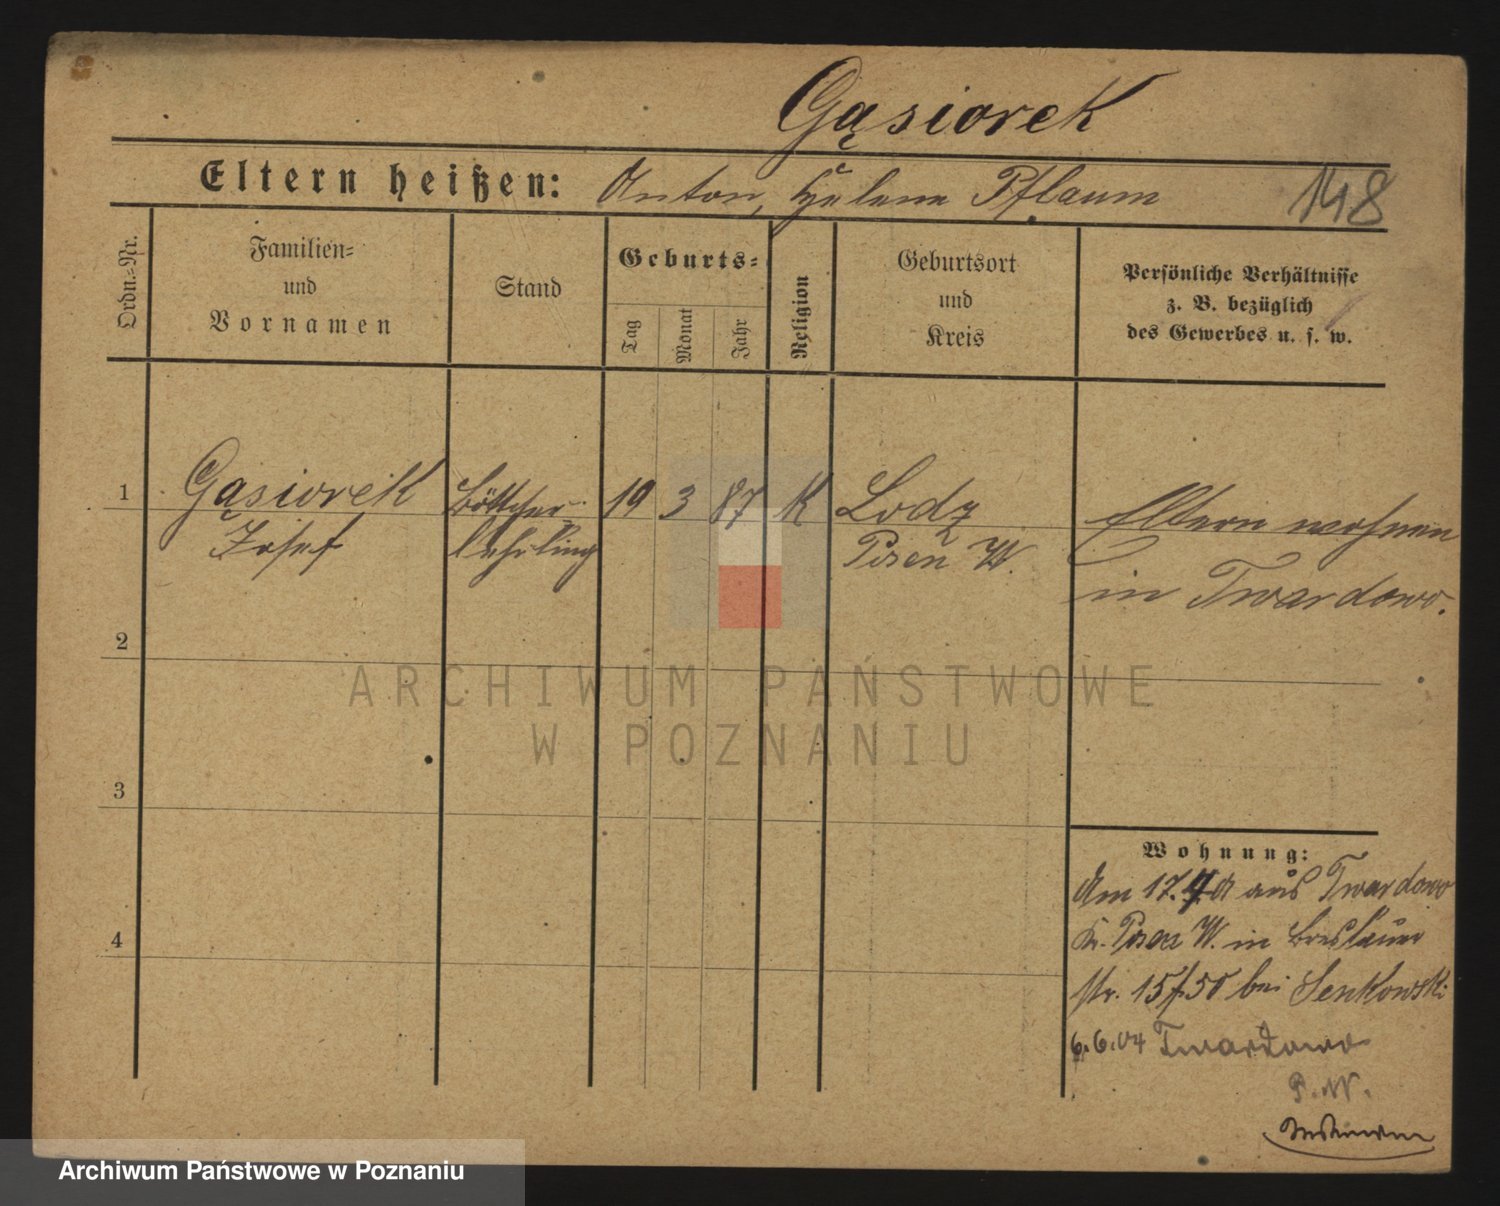 Gąsiorek
Eltern heißen: Anton, Helene Pflaum 148
Ordn.=Nr.
Familien=
und
Vornamen
Stand
Geburts=
Tag
Monat
Jahr
Religion
Geburtsort
und
Kreis
Persönliche Verhältnisse
z. B. bezüglich
des Gewerbes u. s. w.
1 Gąsiorek Böttcher- 19 3 87 K Lodz Eltern wohnen
Josef lehrling Posen W. in Twardowo.
2
ARCHIWUM PAŃSTWOWE
W POZNANIU
3
Wohnung:
Am 17. aus Twardowo
Kr. Posen W. in Breslauer
str. 15 bei Senkowski
4
6.6.04 Twardowo
P. W.
Archiwum Państwowe w Poznaniu